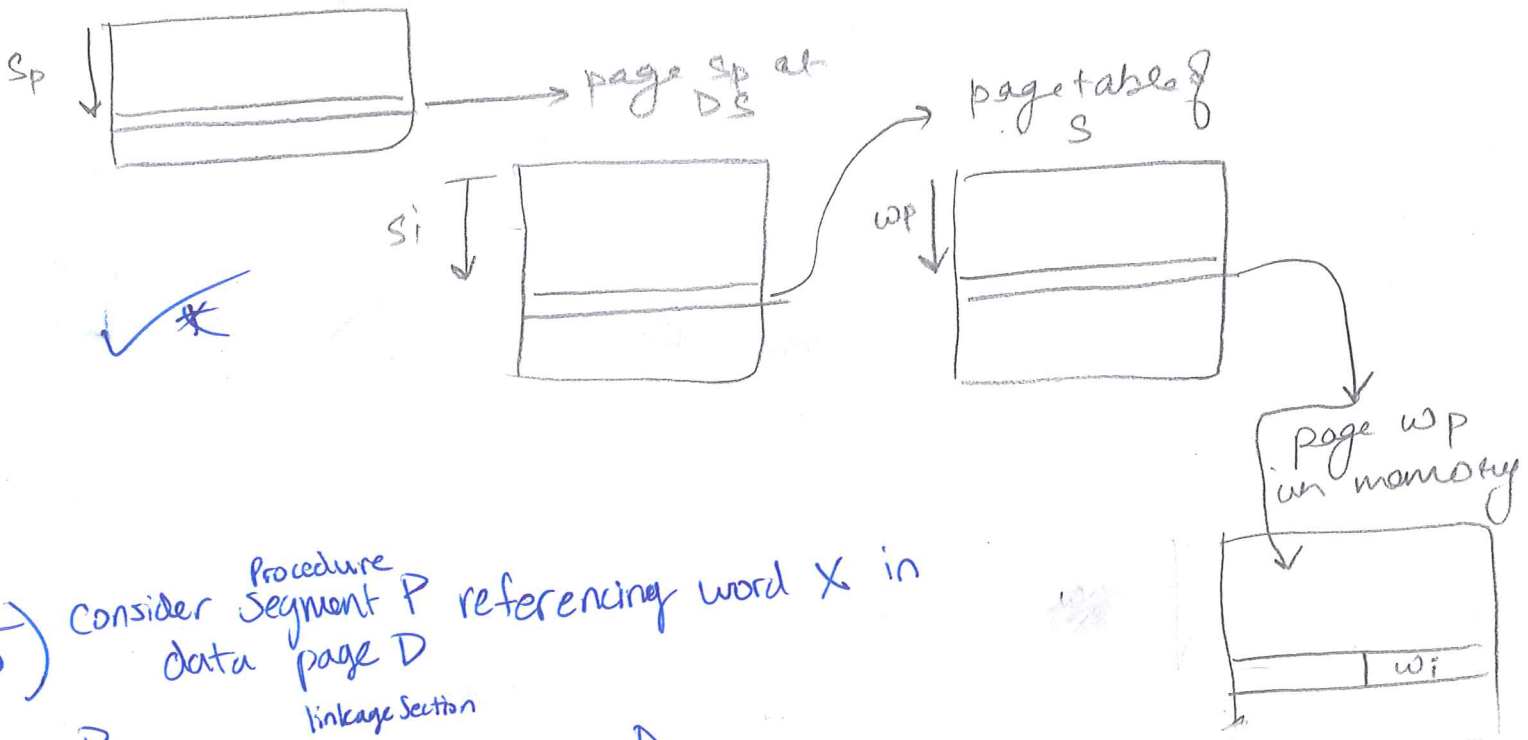 Sp
page Sp at
DS
page table of
S
Si
wp
page wp
in memory
wi
Procedure
Consider Segment P referencing word X in
data page D
linkage Section